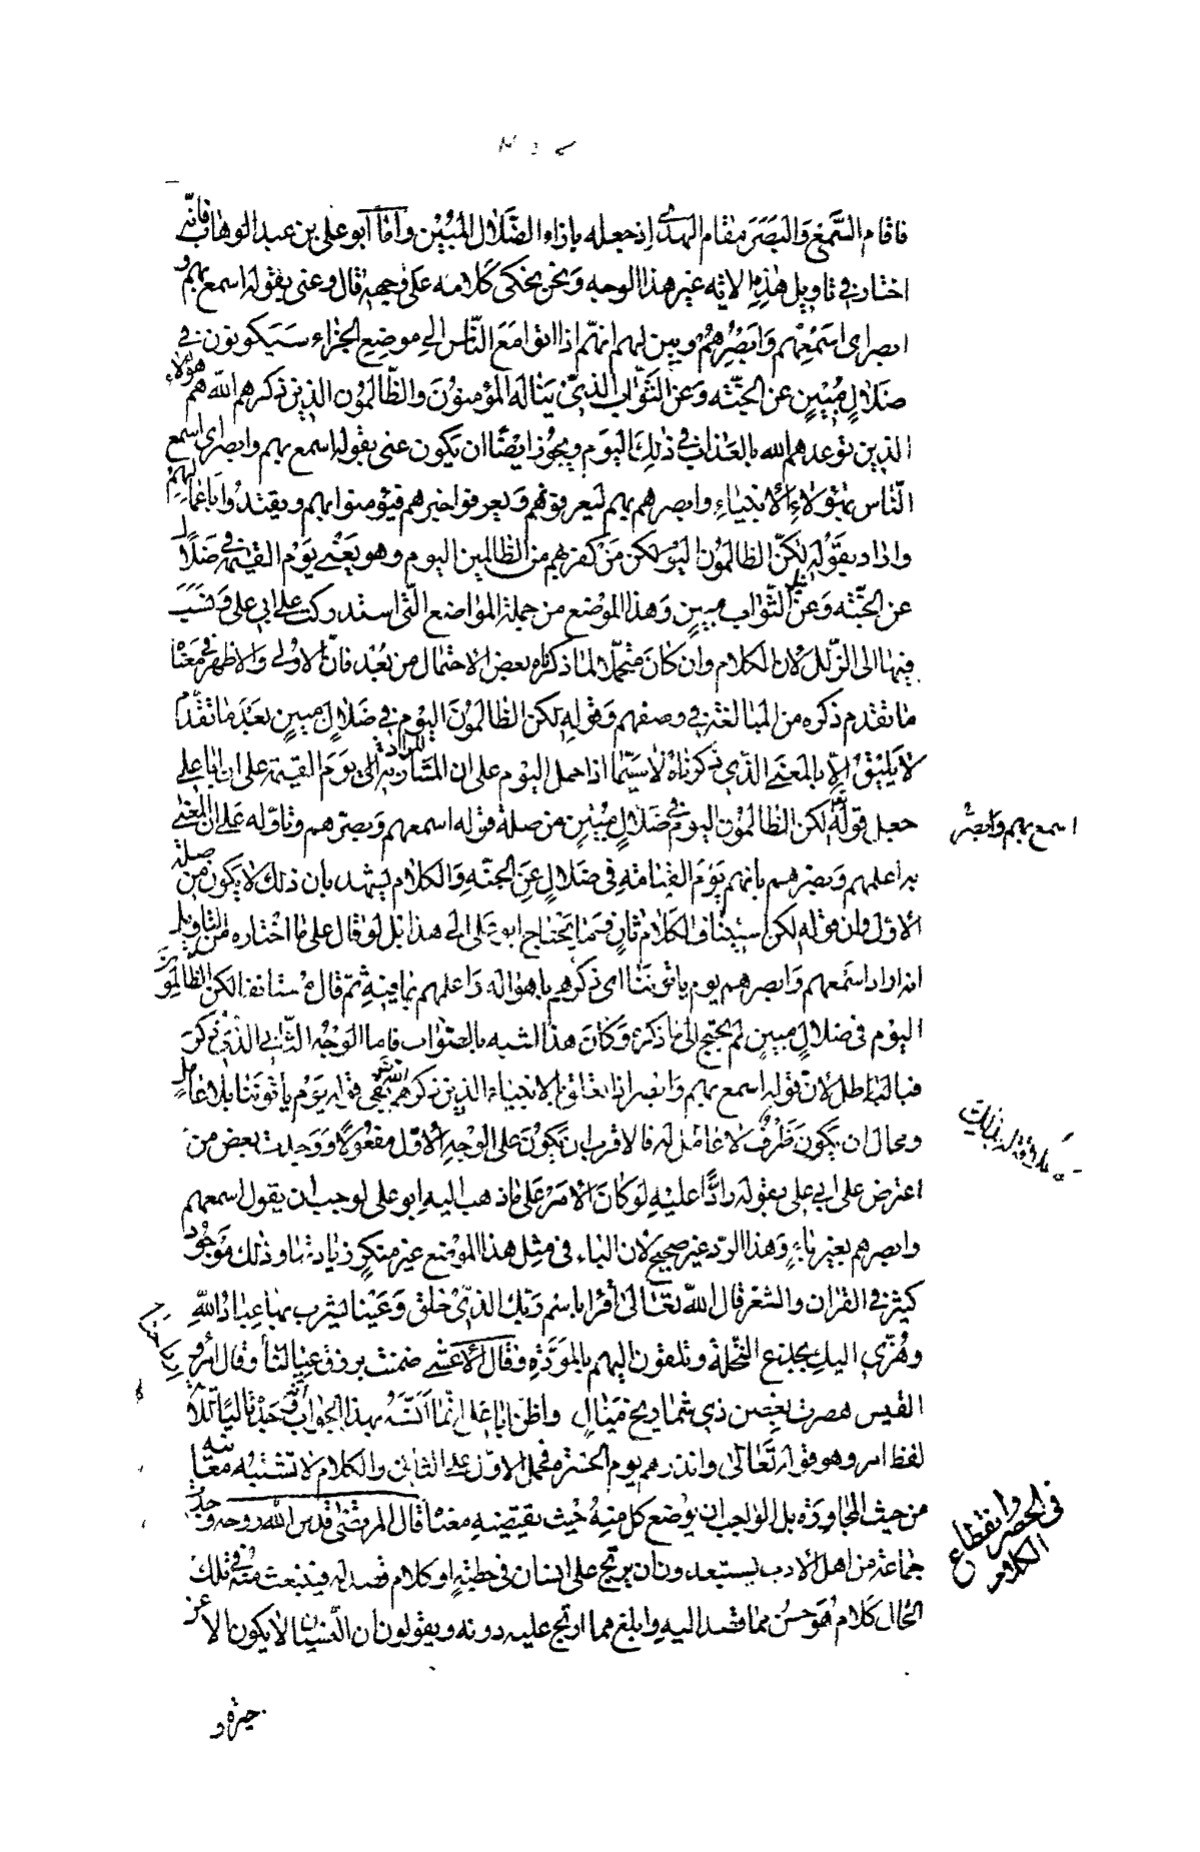 فاقام السَّمْعَ وَالبَصَرَ مقام الهدى اِذ جعله بازاء الضَّلال المُبِيْن وامّا ابو على بن عبد الوهاب فانّه
اختار فى تاويل هٰذِهِ الاية غير هذا الوجه وَنحن نحكى كَلامه عَلى وَجهه قال وعنى بقوله اسمع بهم و
ابصر اى اسْمِعْهم وَابَصِرْهُمْ وبين لهم انهّم اذا اتوا مَعَ النّاس الى موضِع الجَزاء سَيَكونون فى
ضَلالٍ مُبِيْنٍ عن الجنّة وَعن الثَّوابِ الذىْ يَنالهُ المؤمنونَ والظّالمُون الذين ذكرهم اللّٰه هم هؤلاء
الذين توعدهم الله بالعَذاب فى ذٰلِكَ اليَوم ويجُوز ايضًا ان يَكون عنى بقوله اسمع بهم وابصر اى اسمع
النّاس بهٰؤلاءِ الانبياءِ وابصرهم بهم ليَعرفوهُم وَيعرفوا خبرهم فيؤمنوا بهم ويقتدُوا باَعمالهمْ
واراد بقوْله لكنِ الظالمُون اليَوْم لكن مَنْ كفر بهم من الظالمين اليوم وهو يَعْنِى يَوْمَ القيٰمة فى ضَلالٍ
عن الجنّة وَعن نيل الثَّوَاب مبينٍ وَهذا الموْضع من جملة المَواضع الّتى استدركت على ابى على وَنُسَبَ
فيها الى الزّلل لانّ الكلام وان كانَ محتملًا لما ذكرناه بعض الاحتمال من بُعْد فانّ الاوْلى وَالاظهر فى مَعْناه
ما تقدم ذكره من المبالغة فى وصفهم وَقوله لكن الظّالمُونَ اليَوْم فى ضَلالٍ مبينٍ بعْدَ ما تقدّم
لا يَليقُ الّا بالمَعْنَى الّذى ذكرناهُ لا سيّما اذا حمل اليوم على ان المراد به المشار به الى يَوْمَ القيٰمة على ان ابا على
جعل قولَهُ لكن الظالمُون اليوم فى ضَلالٍ مُبيْنٍ من صلة قوله اسمعهم وَبصّرهم وتاوّله عَلى انّ المعْنى
اسمع بهم وابصر
به اعلمهم وَبصّرهم بانهم يَوْمَ القيامة فى ضلالٍ عَنِ الجنّة وَالكلام يشهد بان ذلك لا يَكون من صلة
الاوّل وان قوله لكن استيناف لكلامٍ ثانٍ وَما يَحتاج ابو عَلى الى هذا بَل لو قال على ما اخْتاره من التاويل
انه اراد اسْمعهم وَابصرهم يوم ياتوننا اى ذكّرهم باهواله وَاعلمهم بما فيهِ ثمّ قال مُستانفًا لكن الظالمون
اليوْم فى ضلالٍ مبينٍ لم يحْتج الى ما ذكرهُ وَكانَ هذا اشبه بالصّوَاب فاما الوَجْه الثّانى الذى ذكرَه
فباطل لانّ قوله اسمع بهم وَابصر اذا تعلق بالانبياءِ الذين ذكرهم اللّٰه بقى قوله يَوْمَ يأتونَنا بلا عامل
ومحال ان يَكونَ ظَرْفٌ لا عامل له فالاقرب ان يَكوْنَ على الوجهِ الاوّل مفعُولًا وَوَجدت بعض من
اعترض على ابى على بقوله رادًّا عليْهِ لو كانَ الامر عَلى ما ذهب اليه ابو على لوجب ان يقول اسمعهم
وابصرهم بغير باءٍ وَهذا الردّ غير صحيح لانّ الباء فى مِثل هذا الموضع غير منكرٍ زيادتها وذٰلك موْجُود
كثير فى القرٰان والشعر قال اللّٰه تعَالىٰ اقرا باسم رَبّك الذىْ خَلق وَعَيْنا يشرب بها عِبادُ اللّٰهِ
وهُزّى اليكِ بجذع النّخلة وتلقون اليهم بالموَدّةِ وقال الاعشى ضمنت برزق عيالنا وقال امرؤ
القيس هصرت بغصن ذى شماريخ ميّالٍ واظنّ ابا على انّما اَنّسَهُ بهذا الجوَاب وَجدْنا تاليًا تلاه
لفظ امر وهو قوله تَعالىٰ وانذرهم يوم الحسرة فحمل الاوّل على الثانى والكلام لا تشتبه معانيه
من حيث المجاورَة بل الواجب ان يُوضع كل منهُ حيث يقتضيه معناهُ قال المرتضى قدس اللّٰه روحه وجدت
فى الحصر وانقطاع
الكلام
جماعةً من اهل الادب يستبعدون ان يرتج على انسان فى خطبةٍ او كلام قصد له فينبعث منهُ فى تلك
الحال كلامٌ هو حسن مما قصد اليهِ وابلغ مما ارتج عليه دونه ويقولون ان النّسيان لا يكون الا عن
حيرة و